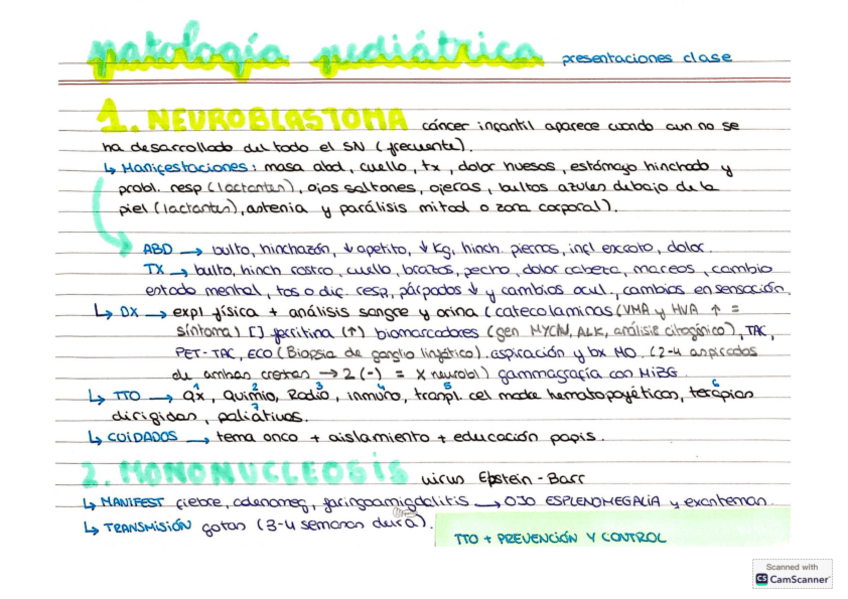 patología pediátrica presentaciones clase
1. NEUROBLASTOMA cáncer infantil aparece cuando aun no se
ha desarrollado del todo el SN (frecuente).
↳ Manifestaciones: masa abd, cuello, tx, dolor huesos, estómago hinchado y
probl. resp (lactantes), ojos saltones, ojeras, bultos azules debajo de la
piel (lactantes), astenia y parálisis mitad o zona corporal).
ABD → bulto, hinchazón, ↓ apetito, ↓ Kg, hinch. piernas, incl escroto, dolor.
TX → bulto, hinch rostro, cuello, brazos, pecho, dolor cabeza, mareos, cambio
estado mental, tos o dif. resp, párpados ↓ y cambios ocul, cambios en sensación.
↳ DX → expl física + análisis sangre y orina (catecolaminas (VMA y HVA ↑ =
síntoma) [] ferritina (↑) biomarcadores (gen MYCN, ALK, análisis citogénico), TAC,
PET-TAC, ECO (Biopsia de ganglio linfático). aspiración y bx MO. (2-4 aspirados
de ambas crestas → 2 (-) = X neurobl) gammagrafía con MIBG.
↳ TTO → 1 qx, 2 Quimio, 3 Radio, 4 inmuno, 5 tranpl. cel madre hematopoyéticas, 6 terapias
dirigidas, 7 paliativos.
↳ CUIDADOS → tema onco + aislamiento + educación papis.
2. MONONUCLEOSIS virus Epstein-Barr
↳ MANIFEST fiebre, adenomeg, faringoamigdalitis → OJO ESPLENOMEGALIA y exantemas.
↳ TRANSMISIÓN gotas (3-4 semanas dura).
TTO + PREVENCIÓN Y CONTROL
Scanned with
CS CamScanner